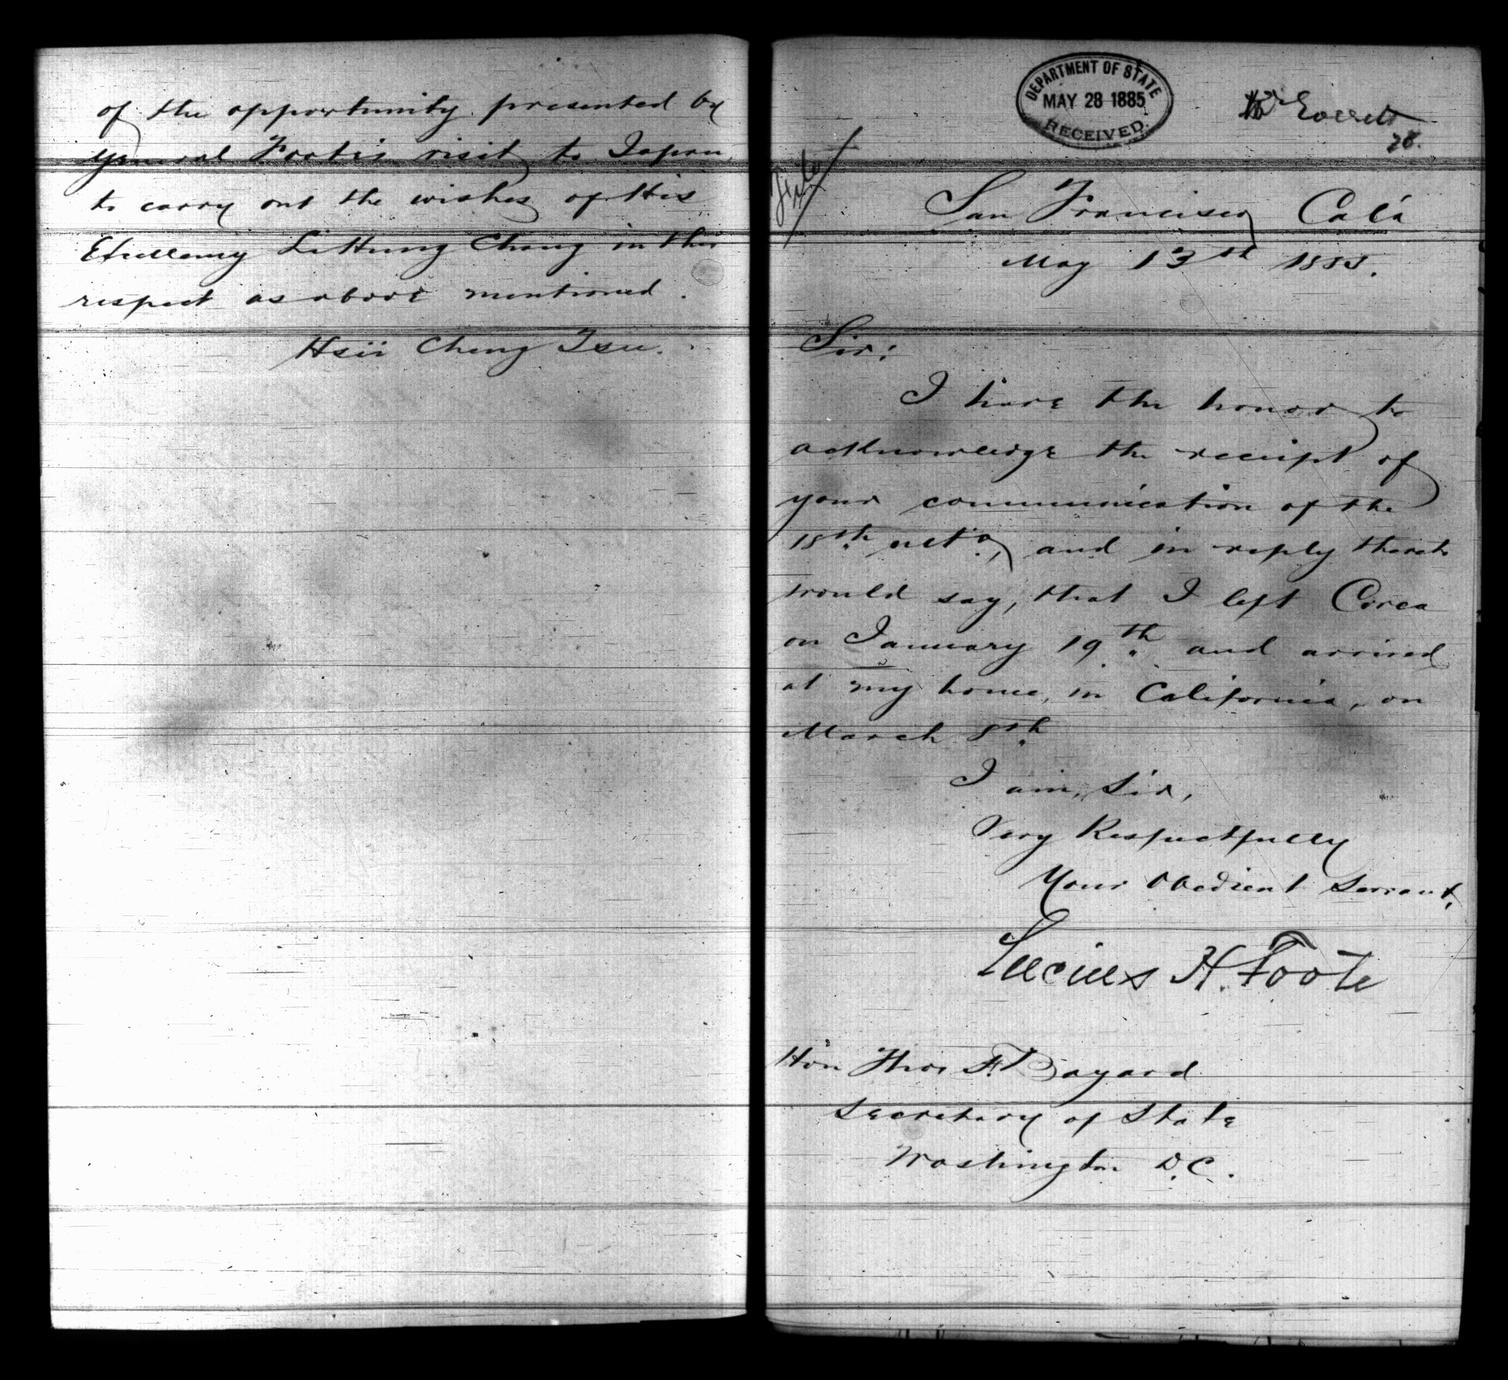 of the opportunity presented by
general Foote's visit to Japan
to carry out the wishes of His
Excellency Li Hung Chang in this
respect as above mentioned.
Hsii Cheng Tsu.
DEPARTMENT OF STATE
MAY 28 1885
RECEIVED
Mr Everett
28.
San Francisco, Cala
May 13th 1885.
Sir:
I have the honor to
acknowledge the receipt of
your communication of the
18th ulto, and in reply thereto
would say, that I left Corea
on January 19th and arrived
at my home, in California, on
March 8th
I am, Sir,
Very Respectfully
Your Obedient Servant,
Lucius H. Foote
Hon Thos F. Bayard
Secretary of State
Washington D.C.